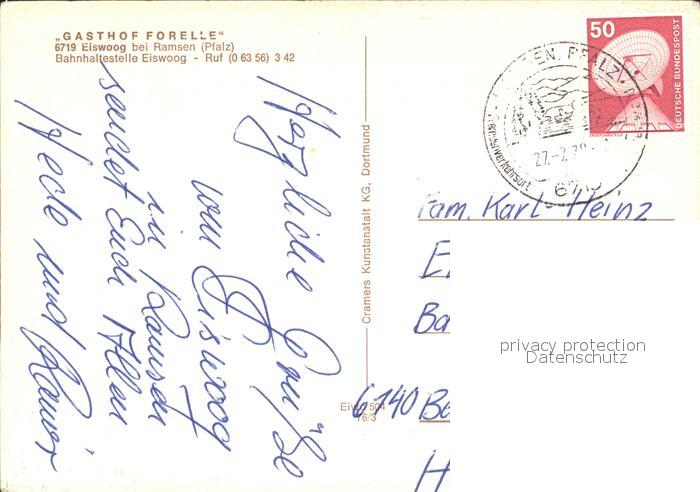 „GASTHOF FORELLE"
6719 Eiswoog bei Ramsen (Pfalz)
Bahnhaltestelle Eiswoog - Ruf (0 63 56) 3 42
Herzliche Grüße
vom Eiswoog
in Ramsen
sendet Euch Allen
Hede und Rainer
Cramers Kunstanstalt KG, Dortmund
76/3
50
DEUTSCHE BUNDESPOST
PFALZ
6719
Fam. Karl-Heinz
E
Ba
6140 Be
H
privacy protection
Datenschutz